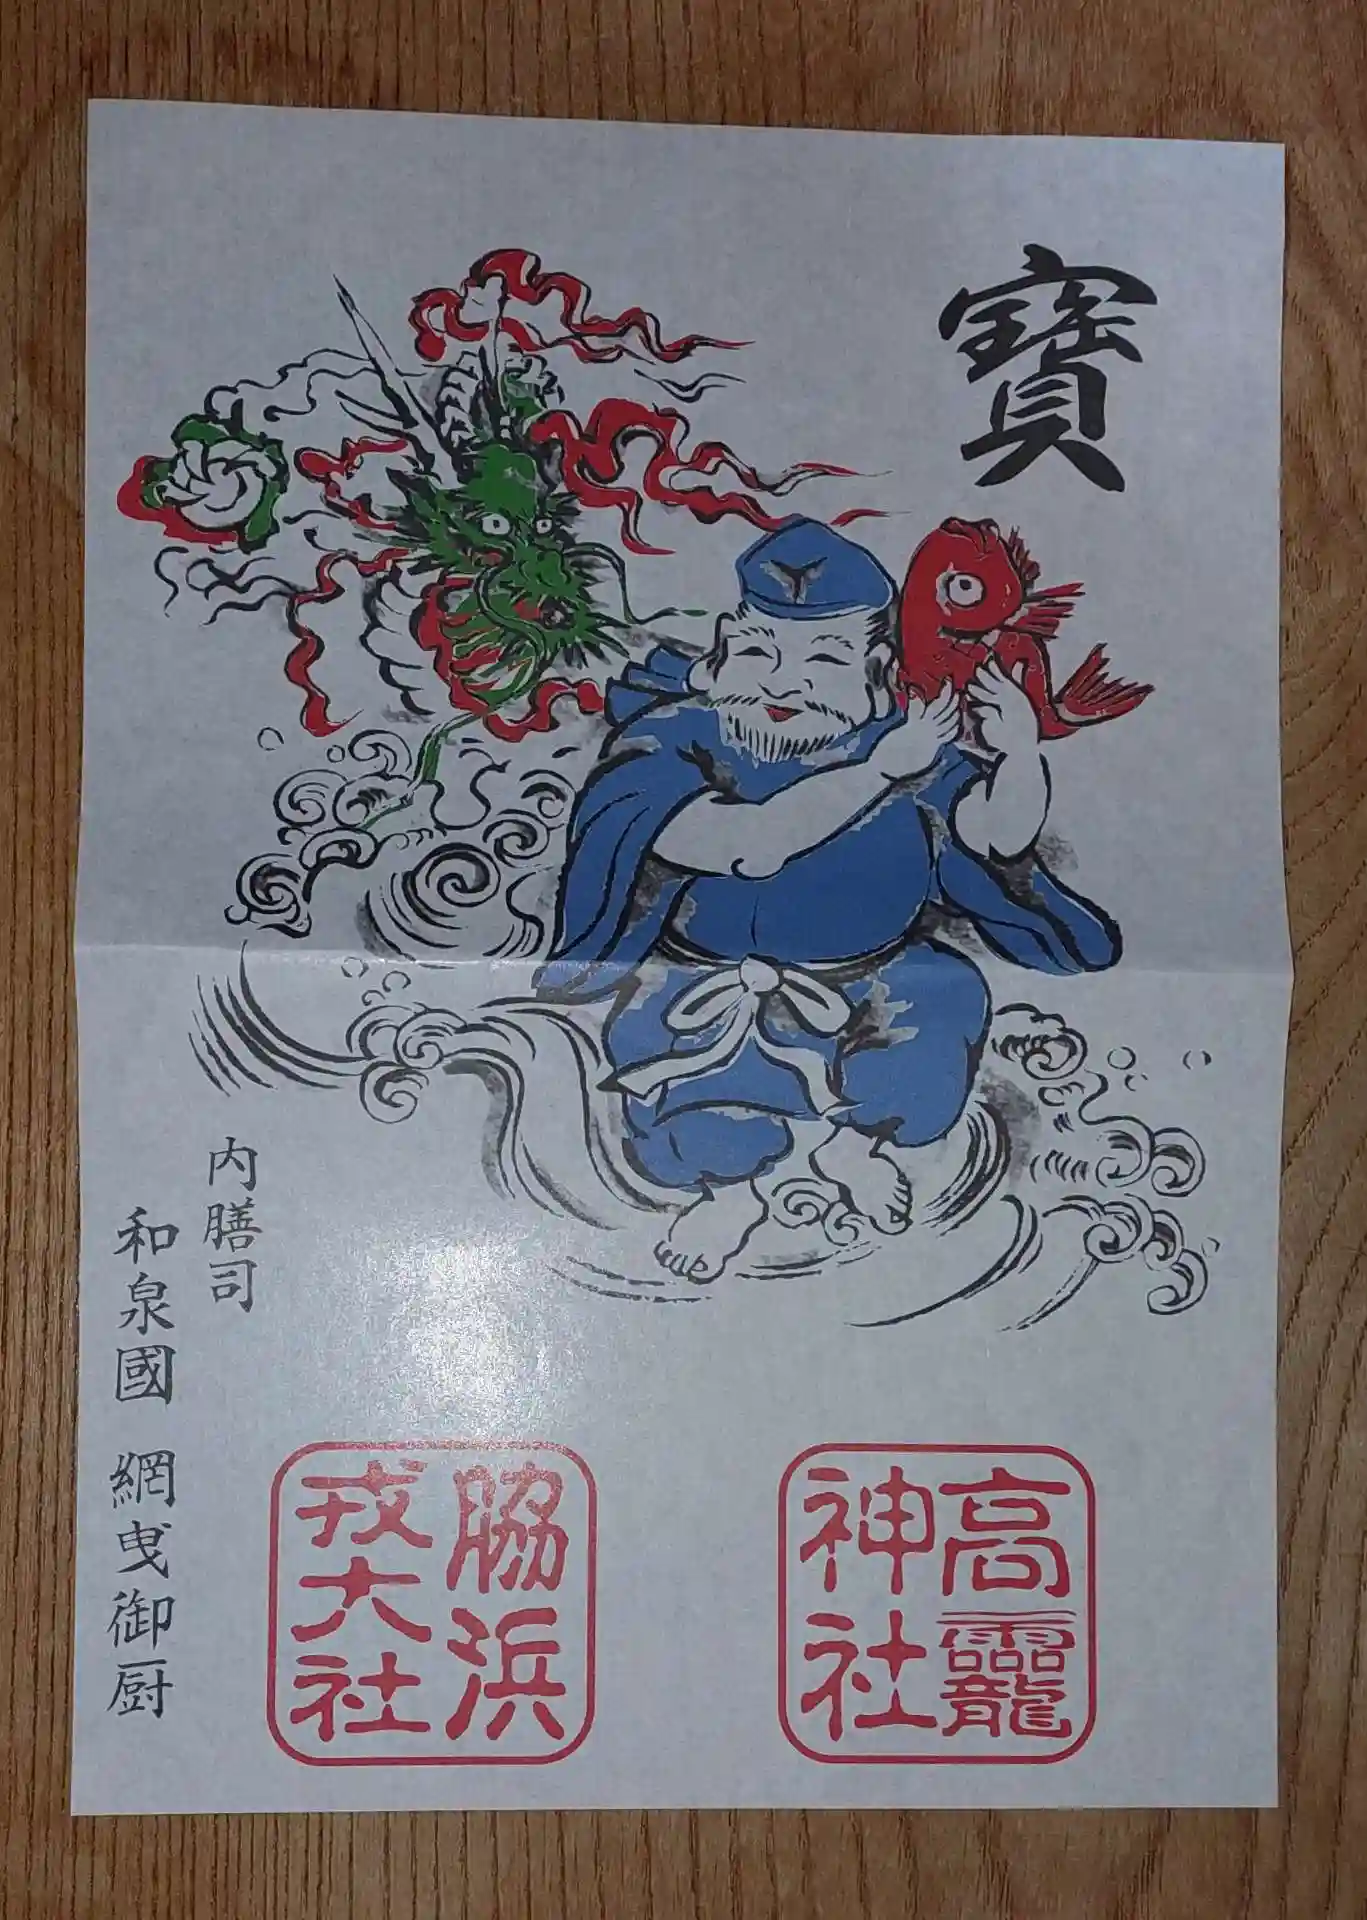 寶
高龗
神社
脇浜
戎大社
内膳司
和泉國　網曳御厨